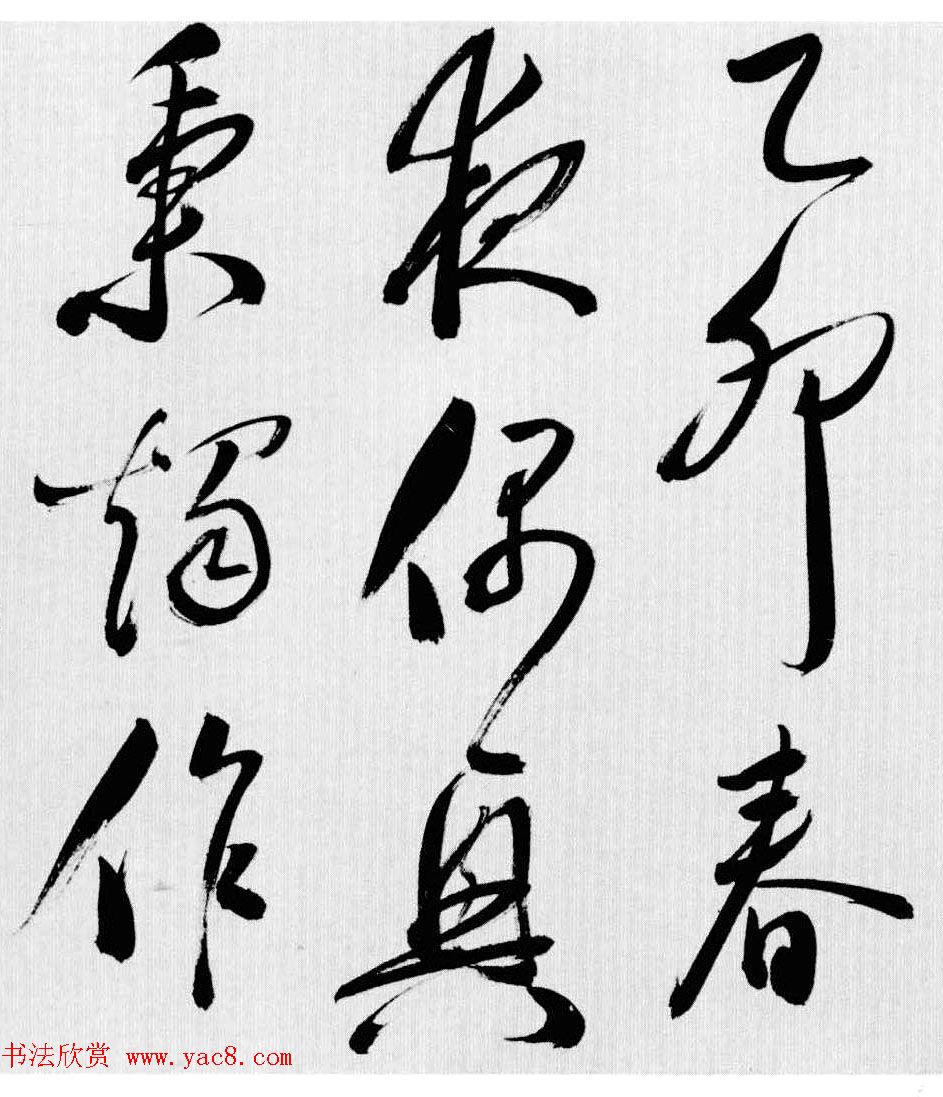 乙卯春
夜偶興
秉燭作
书法欣赏 www.yac8.com